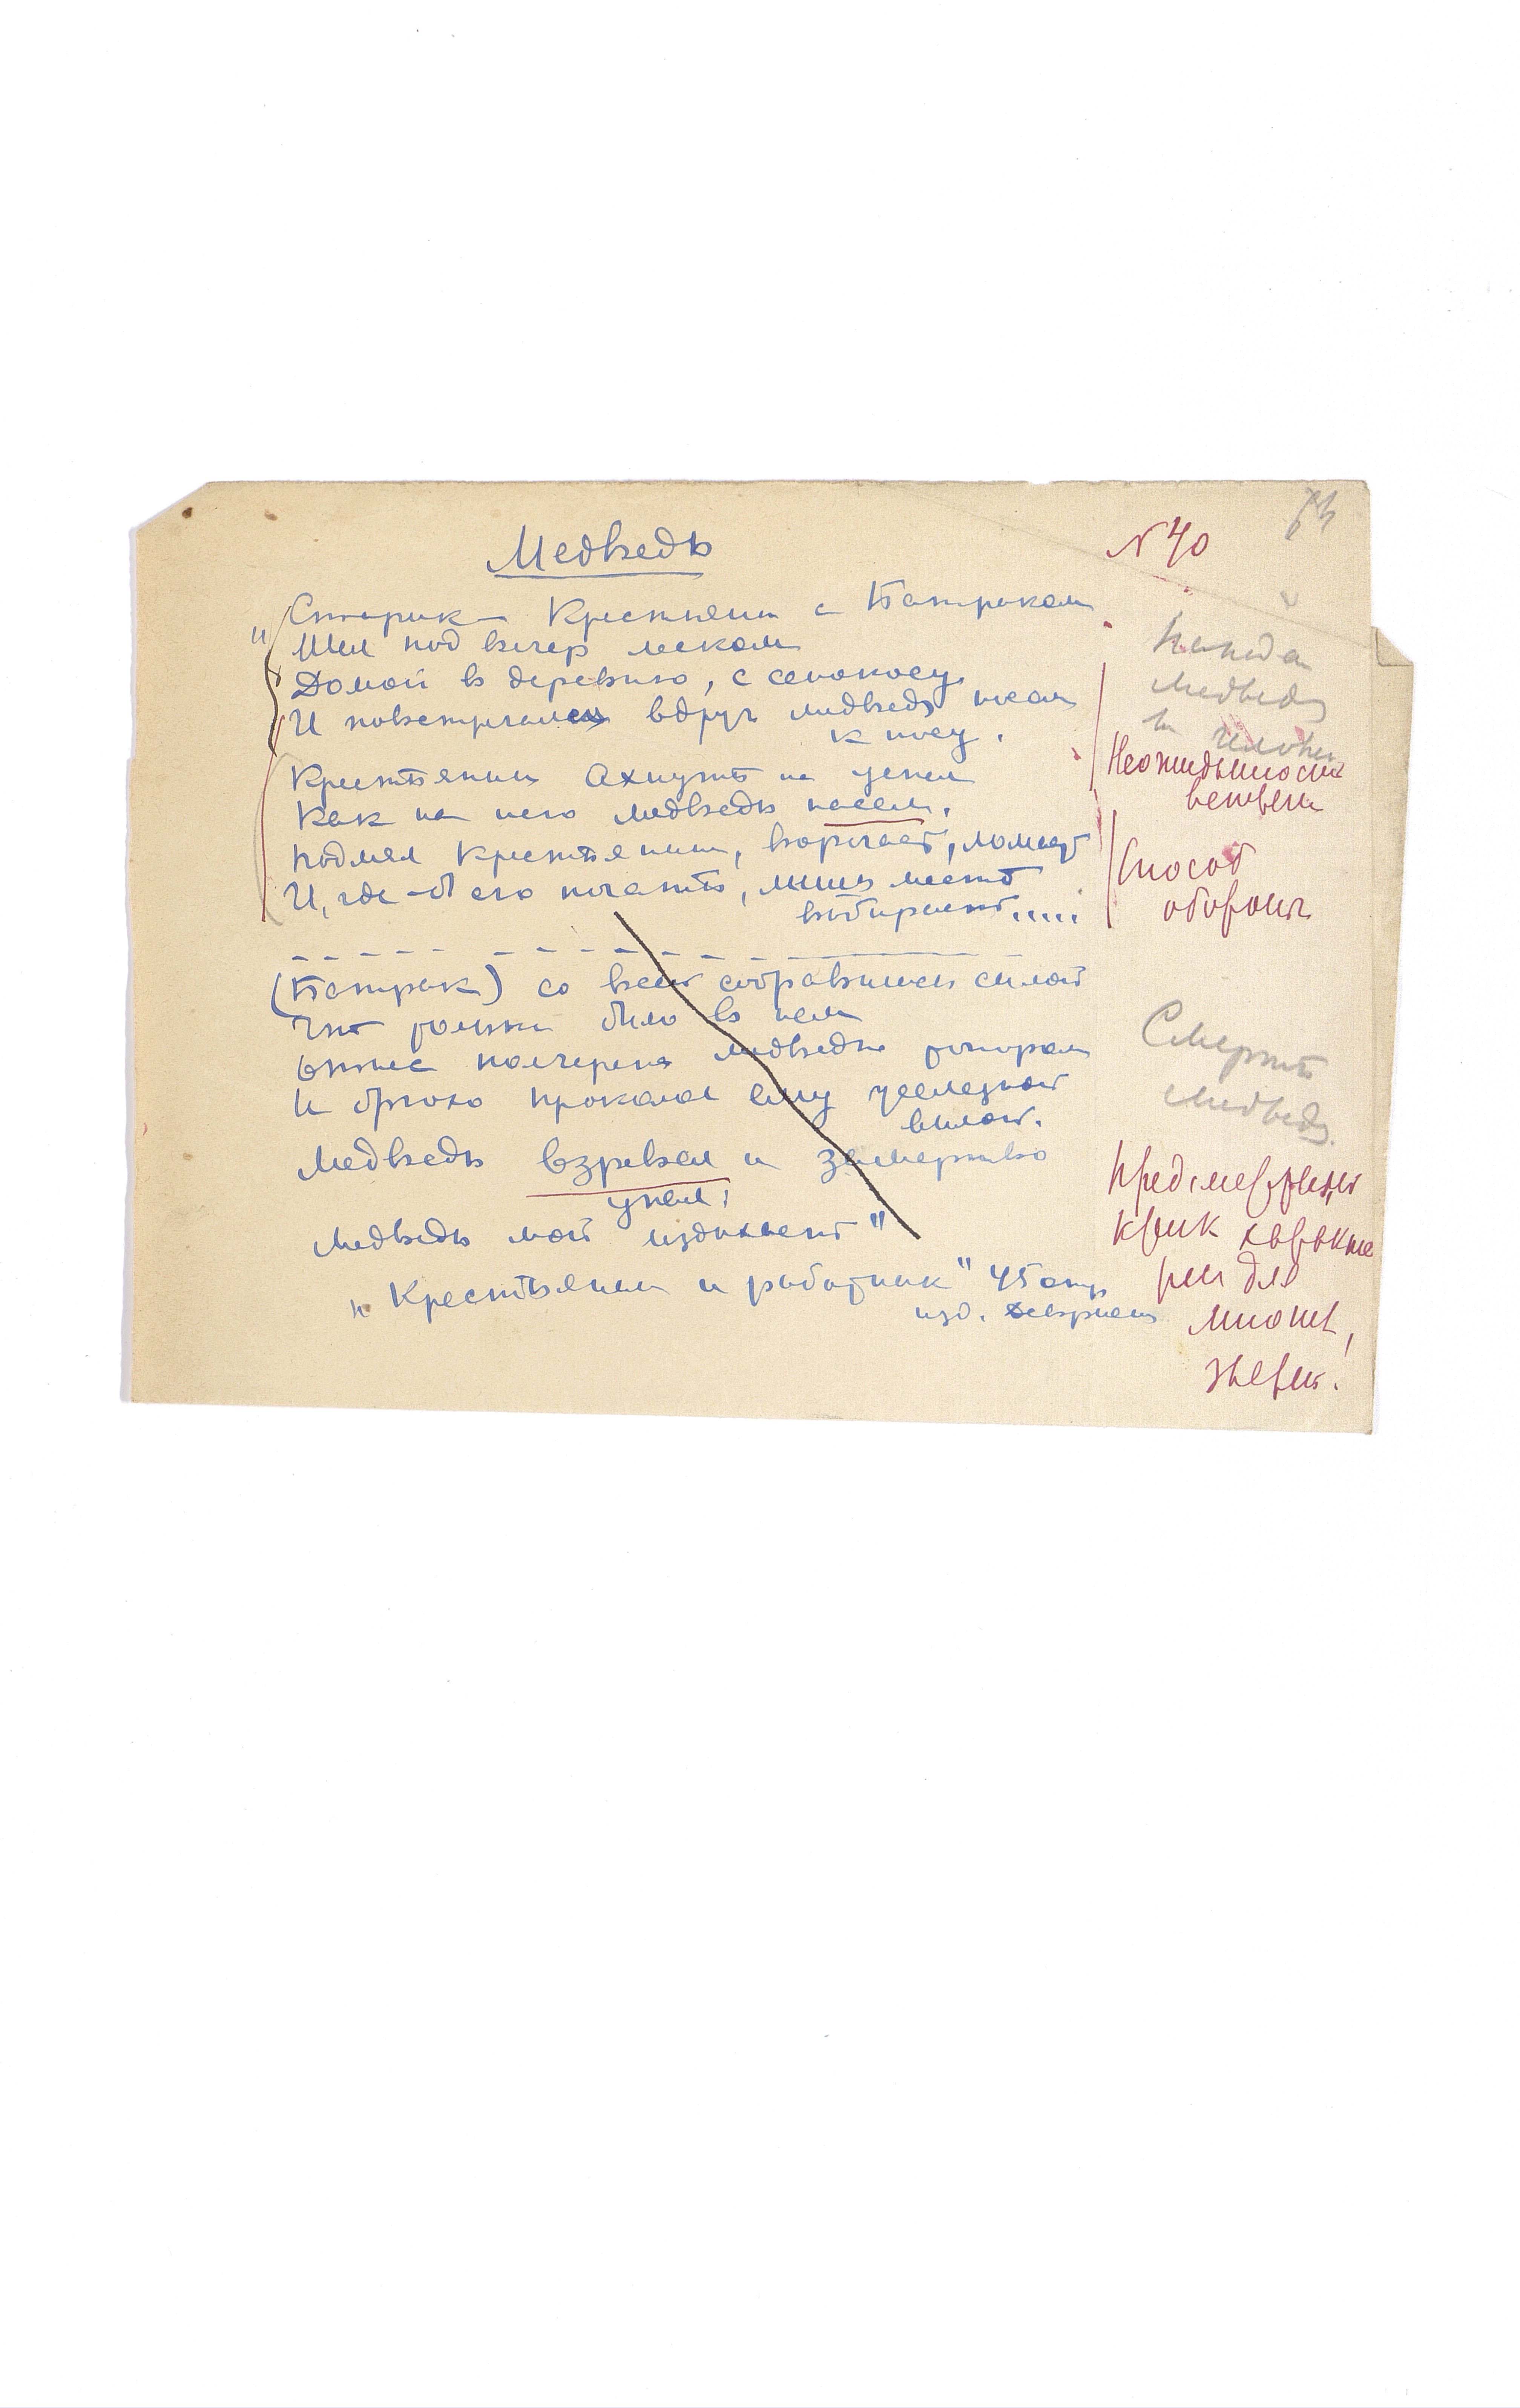 № 40
Медведь
"Старик Крестьянин с Батраком
Шел под вечер леском
Домой в деревню, с сенокосу,
И повстречали вдруг медведя носом
к носу.
Крестьянин Ахнуть не успел
Как на него медведь насел.
Подмял Крестьянина, ворочает, ломает
И, где-б его почать, лишь место
выбирает.....
(Батрак) со всей собравшись силой
Что только было в нем
Отнес полчерепа медведю топором
И брюхо проколол ему железной
вилой.
Медведь взревел и замертво
упал;
Медведь мой издыхает"
"Крестьянин и работник" 45 стр.
изд.
Медведя
Неожиданность
встречи
Способ
обороны
Смерть
медведя.
Предсмертный
крик характе
рен для
многих
зверей.